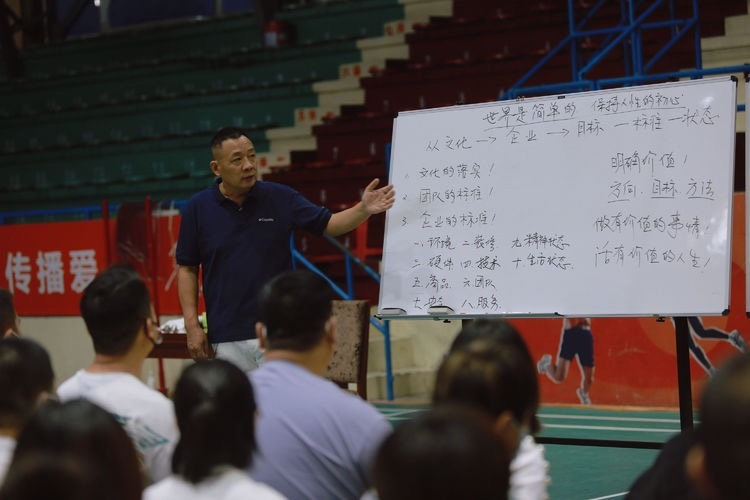 世界是简单的 保持人性的初心
从文化→企业→目标—标准—状态
1. 文化的落实!
2. 团队的标准!
3. 企业的标准!
一.环境 二.装修 九.精神状态
三.硬件 四.技术 十.生活状态
五.商品 六.团队
八.服务
明确价值!
方向 目标 方法
做有价值的事情!
活有价值的人生!
传播爱
Columbia